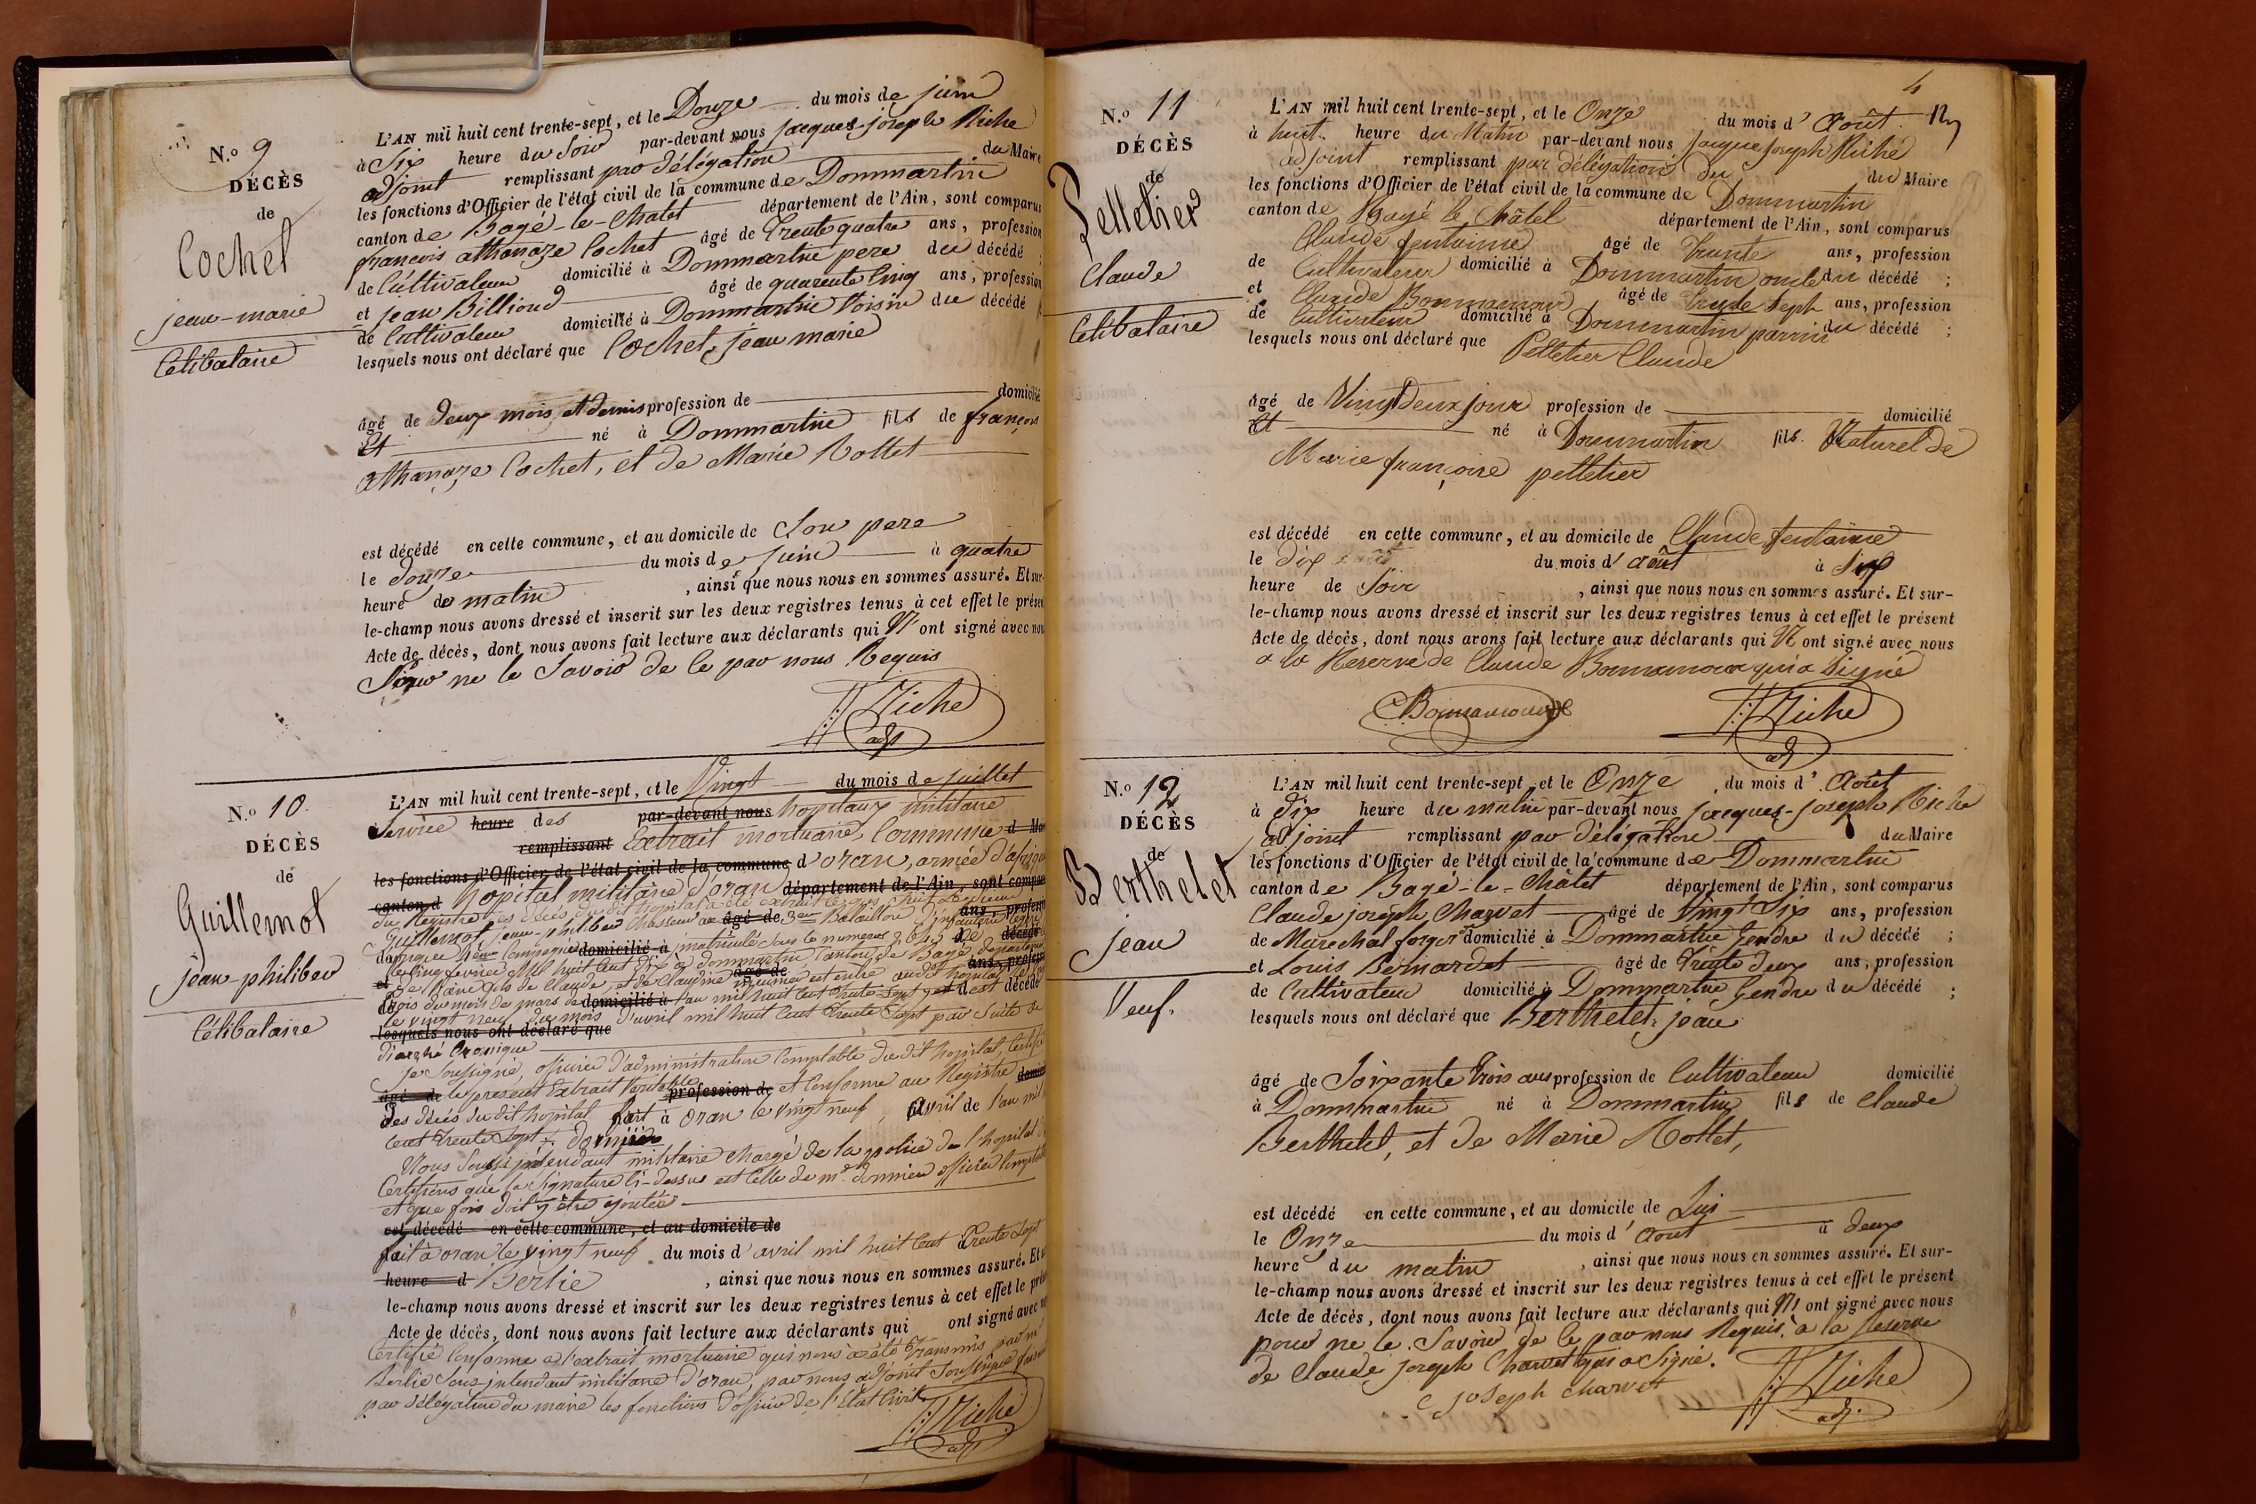 N.o 9
DÉCÈS
de
Cochet
jean-marie
Célibataire
L'AN mil huit cent trente-sept, et le Douze du mois de juin
à Six heure du Soir par-devant nous jacques-joseph Riche
adjoint remplissant par délégation du Maire
les fonctions d'Officier de l'état civil de la commune de Dommartin
canton de Bagé-le-Chatel département de l'Ain, sont comparus
françois athanaze Cochet âgé de trente quatre ans, profession
de Cultivateur domicilié à Dommartin pere du décédé ;
et jean Billioud âgé de quarente Cinq ans, profession
de Cultivateur domicilié à Dommartin Voisin du décédé
lesquels nous ont déclaré que Cochet, jean marie
âgé de deux mois et demis profession de domicilié
et né à Dommartin fils de françois
athanaze Cochet, et de Marie Rollet
est décédé en cette commune, et au domicile de Son pere
le douze du mois de juin à quatre
heure du matin, ainsi que nous nous en sommes assuré. Et sur-
le-champ nous avons dressé et inscrit sur les deux registres tenus à cet effet le présent
Acte de décès, dont nous avons fait lecture aux déclarants qui N'ont signé avec nous
Pour ne le Savoir de ce par nous Requis
Riche
adj
N.o 10
DÉCÈS
de
Guillemot
jean-philiber
Célibataire
L'AN mil huit cent trente-sept, et le Vingt du mois de juillet
Service heure des par-devant nous hopitaux militaire
remplissant Extrait mortuaire, Commune d
les fonctions d'Officier de l'état civil de la commune d'oran, armée d'afrique
canton d hopital militaire d'oran département de l'Ain, sont comparus
du Registre des décès du dit hopital a été extrait
Guillemot, jean-philiber Chasseur au âgé de 3eme Bataillon d'infanterie légère
d'afrique Compagnie domicilié à matriculé Sous le numeros décédé
le Cinq fevrier Mil huit Cent dix à dommartin Canton de Bagé département
et de l'ain fils de Claude, et de Claudine âgé de est entré audit hopital ans, profession
trois du mois de mars de domicilié à l'an mil huit Cent trente Sept y est décédé
le vingt neuf du mois d'avril mil huit Cent trente Sept par Suite de
lesquels nous ont déclaré que
diarrhé Cronique
je Soussigné, officier d'administration Comptable du dit hopital, Certifie
âgé de le present Extrait Véritable profession de et Conforme au Registre
des décès du dit hopital fait à oran le vingt neuf avril de l'an mil
Cent trente Sept
Nous Sous intendant militaire chargé de la police de l'hopital
Certifions que la Signature Ci-dessus est Celle de mr. officier Comptable
et que fois doit y être ajoutée
est décédé en cette commune, et au domicile de
fait à oran le vingt neuf du mois d'avril mil huit Cent trente Sept
heure d Berlié, ainsi que nous nous en sommes assuré. Et
le-champ nous avons dressé et inscrit sur les deux registres tenus à cet effet le présent
Acte de décès, dont nous avons fait lecture aux déclarants qui ont signé avec
Certifié Conforme a l'extrait mortuaire qui nous a été transmis par mr
Berlié Sous-intendant militaire d'oran, par nous adjoint Soussigné
par délégation du maire les fonctions d'officier de l'état Civil
Riche
adj
4
N.o 11
DÉCÈS
de
Pelletier
Claude
Célibataire
L'AN mil huit cent trente-sept, et le Onze du mois d'Août
à huit heure du Matin par-devant nous jacque joseph Riche
adjoint remplissant par délégation du du Maire
les fonctions d'Officier de l'état civil de la commune de Dommartin
canton de Bagé le Châtel département de l'Ain, sont comparus
Claude fontaine âgé de trente ans, profession
de Cultivateur domicilié à Dommartin oncle du décédé ;
et Claude Bonnamour âgé de trente Sept ans, profession
de Cultivateur domicilié à Dommartin parrin du décédé ;
lesquels nous ont déclaré que Pelletier Claude
âgé de Vingt deux jour profession de domicilié
et né à Dommartin fils Naturel de
Marie françoise pelletier
est décédé en cette commune, et au domicile de Claude fontaine
le dix du mois d'août à Six
heure de Soir, ainsi que nous nous en sommes assuré. Et sur-
le-champ nous avons dressé et inscrit sur les deux registres tenus à cet effet le présent
Acte de décès, dont nous avons fait lecture aux déclarants qui N'ont signé avec nous
a la Reserve de Claude Bonnamour qui a Signé
C Bonnamour
Riche
adj
N.o 12
DÉCÈS
de
Berthelet
jean
Veuf.
L'AN mil huit cent trente-sept, et le Onze du mois d'Août
à dix heure du matin par-devant nous jacques-joseph Riche
adjoint remplissant par délégation du Maire
les fonctions d'Officier de l'état civil de la commune de Dommartin
canton de Bagé-le-Châtel département de l'Ain, sont comparus
Claude joseph Charvet âgé de Vingt Six ans, profession
de Marechal forgeron domicilié à Dommartin Gendre du décédé ;
et Louis Bernardet âgé de Trente deux ans, profession
de Cultivateur domicilié à Dommartin Gendre du décédé ;
lesquels nous ont déclaré que Berthelet, jean
âgé de Soixante trois ans profession de Cultivateur domicilié
à Dommartin né à Dommartin fils de Claude
Berthelet, et de Marie Rollet,
est décédé en cette commune, et au domicile de Lui
le Onze du mois d'août à deux
heure du matin, ainsi que nous nous en sommes assuré. Et sur-
le-champ nous avons dressé et inscrit sur les deux registres tenus à cet effet le présent
Acte de décès, dont nous avons fait lecture aux déclarants qui N'ont signé avec nous
pour ne le Savoir de ce par nous Requis, à la Reserve
de Claude joseph Charvet qui a Signé.
C joseph charvet
Riche
adj.